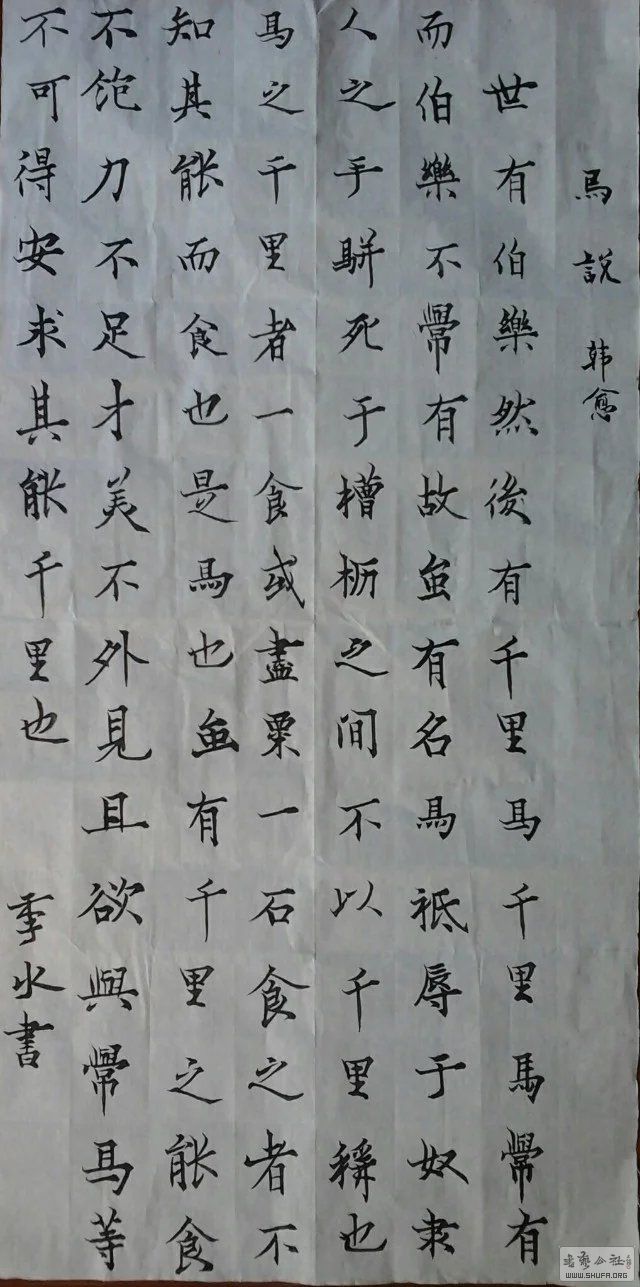 馬說 韩愈
世有伯樂然後有千里馬千里馬常有
而伯樂不常有故虽有名馬祗辱于奴隶
人之手駢死于槽枥之间不以千里稱也
馬之千里者一食或盡粟一石食之者不
知其能而食也是馬也虽有千里之能食
不飽力不足才美不外見且欲與常馬等
不可得安求其能千里也
季水書
书艺公社
WWW.SHUFA.ORG